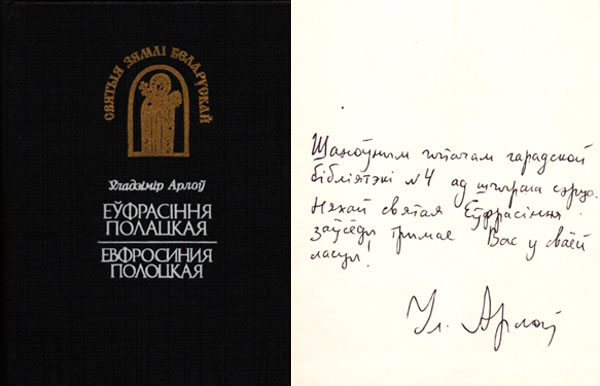 СВЯТЫЯ ЗЯМЛІ БЕЛАРУСКАЙ
Уладзімір Арлоў
ЕЎФРАСІННЯ
ПОЛАЦКАЯ
ЕВФРОСИНИЯ
ПОЛОЦКАЯ
Шаноўным чытачам гарадской
бібліятэкі №4 ад шчырага сэрца.
Няхай святая Еўфрасіння
заўсёды трымае Вас у сваёй
ласцы!
Ул. Арлоў